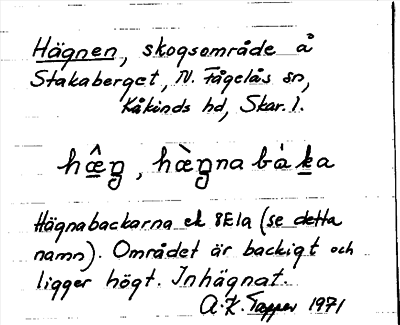 Hägnen, skogsområde å
Stakaberget, N. Fågelås sn,
Kåkinds hd, Skar. l.
hæ̂g, hæ̀gna bàka
Hägnabackarna ek 8E1a (se detta
namn). Området är backigt och
ligger högt. Inhägnat.
A.K. Tapper 1971